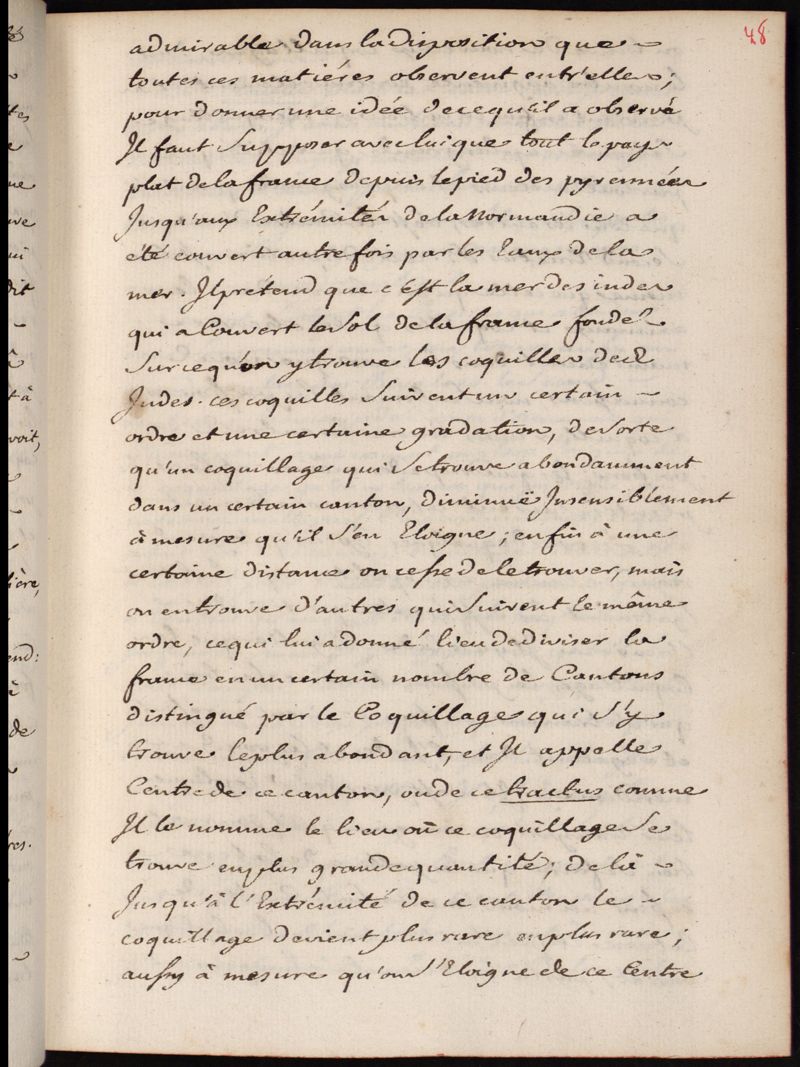 48
admirable dans la disposition que ~
toutes ces matiéres observent entr'elles;
pour donner une idée de ce qu'il a observé
Il faut Supposer avec lui que tout le pays
plat de la france depuis le pied des pyrennées
Jusqu'aux Extrémités de la Normandie a
été couvert autrefois par les Eaux de la
mer. Il prétend que c'Est la mer des indes
qui a Couvert le Sol de la france fondé ~
Sur ce qu'on y trouve les coquilles des
Indes. ces coquilles Suivent un certain ~
ordre et une certaine gradation, de Sorte
qu'un coquillage qui Se trouve abondamment
dans un certain canton, diminuë Insensiblement
à mesure qu'il S'en Eloigne; enfin à une
certaine distance on cesse de le trouver, mais
on en trouve d'autres qui Suivent le même
ordre, ce qui lui a donné lieu de diviser la
france en un certain nombre de Cantons
distingué par le Coquillage qui S'y
trouve le plus abondant, et Il appelle
Centre de ce canton, ou de ce tractus comme
Il le nomme le lieu où ce coquillage Se
trouve en plus grande quantité; de là ~
Jusqu'à l'Extrémité de ce canton le ~
coquillage devient plus rare en plus rare;
aussy à mesure qu'on S'Eloigne de ce Centre